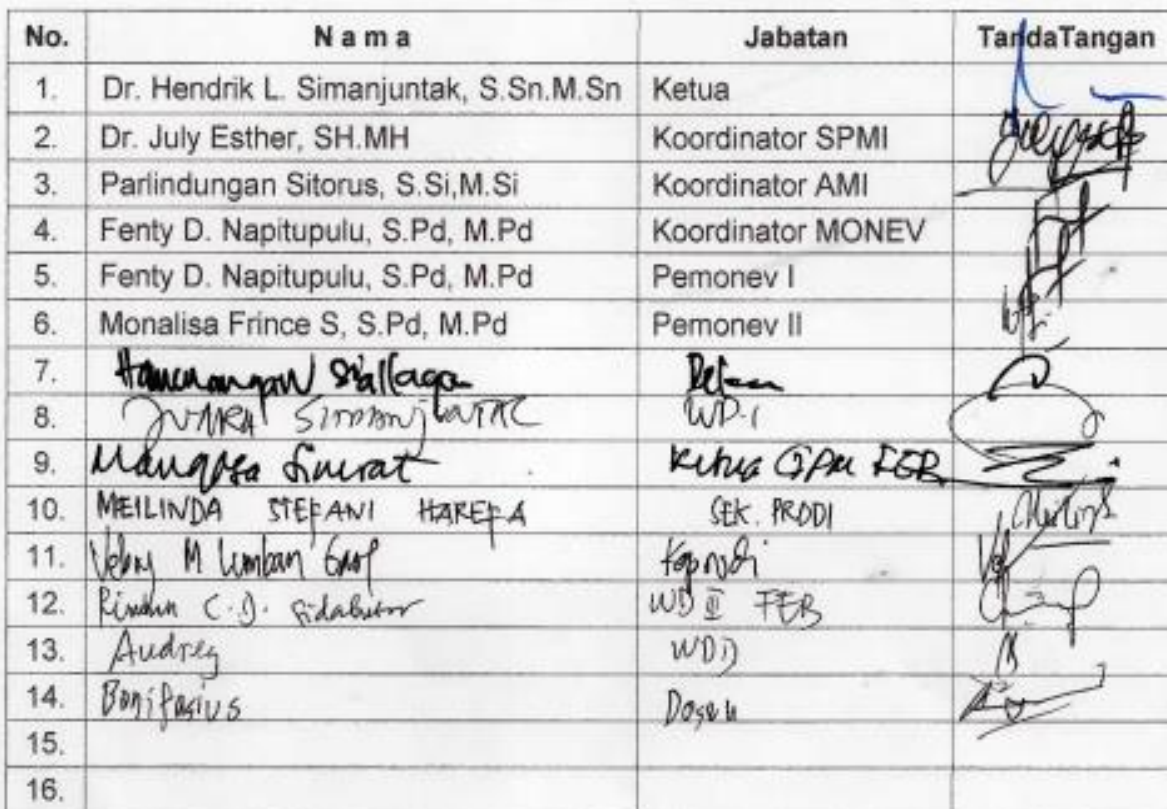 No. Nama Jabatan TandaTangan
1. Dr. Hendrik L. Simanjuntak, S.Sn.M.Sn Ketua
2. Dr. July Esther, SH.MH Koordinator SPMI
3. Parlindungan Sitorus, S.Si,M.Si Koordinator AMI
4. Fenty D. Napitupulu, S.Pd, M.Pd Koordinator MONEV
5. Fenty D. Napitupulu, S.Pd, M.Pd Pemonev I
6. Monalisa Frince S, S.Pd, M.Pd Pemonev II
7. Hamonangan Siallagan Dekan
8. JUARA SIMANJUNTAK WD-I
9. Mangasa Sinurat Ketua GPM FEB
10. MEILINDA STEFANI HAREFA SEK. PRODI
11. M Lumban Gaol Kaprodi
12. C.D. Sidabutar WD III FEB
13. Audrey WD
14. Bonifasius Dosen
15.
16.